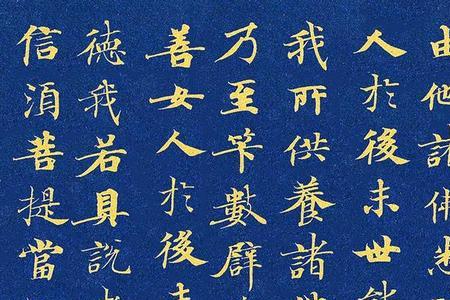 由他諸佛悉
人於後末世能
我所供養諸
乃至笇數譬
善女人於後末
德我若具說
信須菩提當